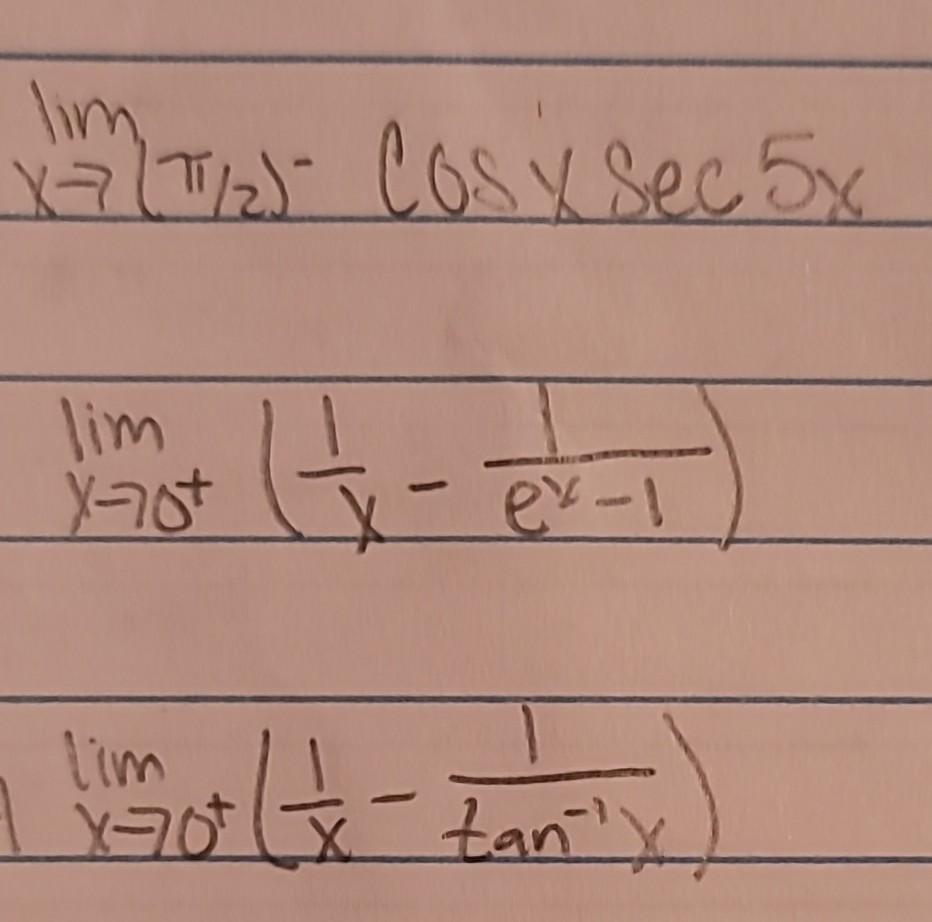 lim x→(π/2)⁻ cos x sec 5x
lim x→0⁺ (1/x - 1/(eˣ-1))
lim x→0⁺ (1/x - 1/(tan⁻¹x))